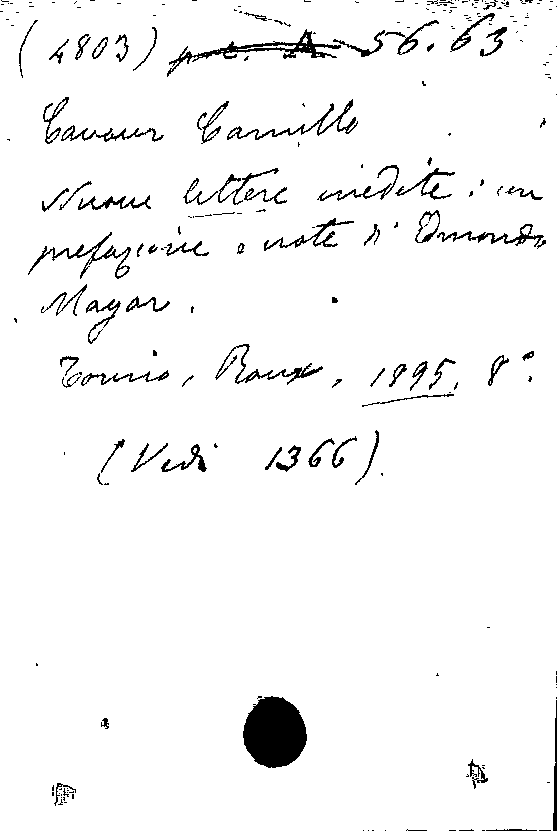 (4803) A 56.63
Cavour Camillo
Nuove lettere inedite: con
prefazione e note di Edmondo
Mayor.
Torino, Roux, 1895. 8°.
(Vedi 1366).